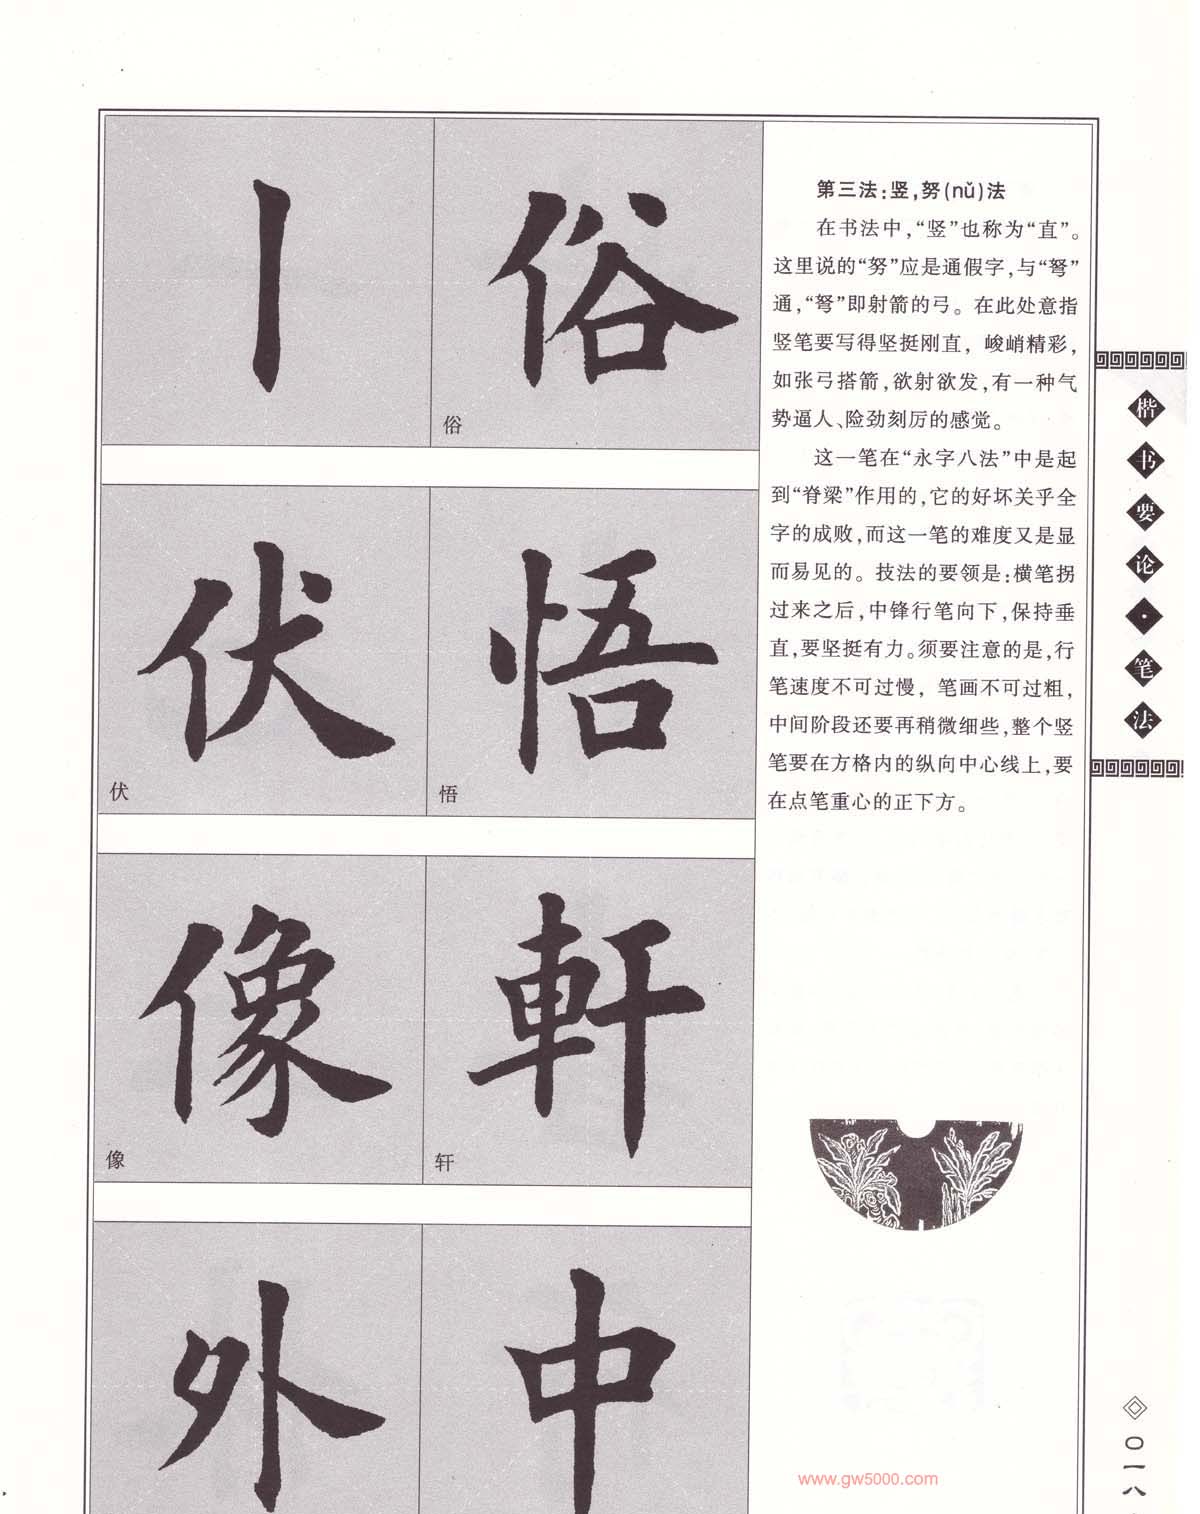 丨
俗
俗
伏
悟
伏
悟
像
軒
像
轩
外
中
第三法：竖，努(nǔ)法
在书法中，“竖”也称为“直”。
这里说的“努”应是通假字，与“弩”
通，“弩”即射箭的弓。在此处意指
竖笔要写得坚挺刚直，峻峭精彩，
如张弓搭箭，欲射欲发，有一种气
势逼人、险劲刻厉的感觉。
这一笔在“永字八法”中是起
到“脊梁”作用的，它的好坏关乎全
字的成败，而这一笔的难度又是显
而易见的。技法的要领是：横笔拐
过来之后，中锋行笔向下，保持垂
直，要坚挺有力。须要注意的是，行
笔速度不可过慢，笔画不可过粗，
中间阶段还要再稍微细些，整个竖
笔要在方格内的纵向中心线上，要
在点笔重心的正下方。
楷书要论·笔法
〇一八
www.gw5000.com